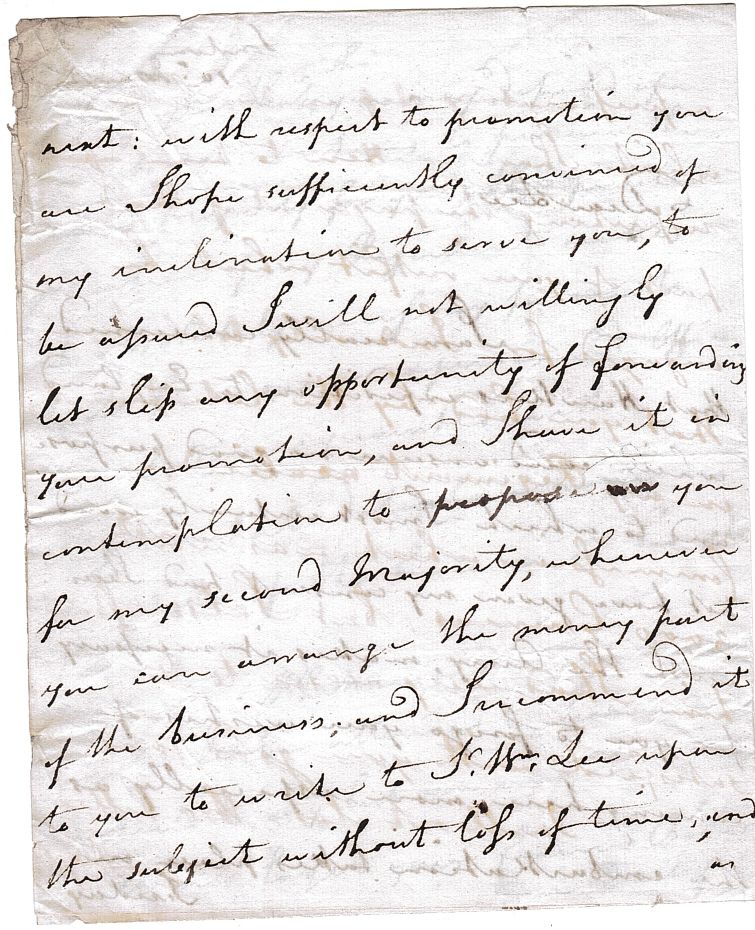 next: with respect to promotion you
are I hope sufficiently convinced of
my inclination to serve you, to
be assured I will not willingly
let slip any opportunity of forwarding
your promotion, and I have it in
contemplation to propose you
for my second Majority, whenever
you can arrange the money part
of the business; and I recommend it
to you to write to Sr. Wm. Lee upon
the subject without loss of time, and
as